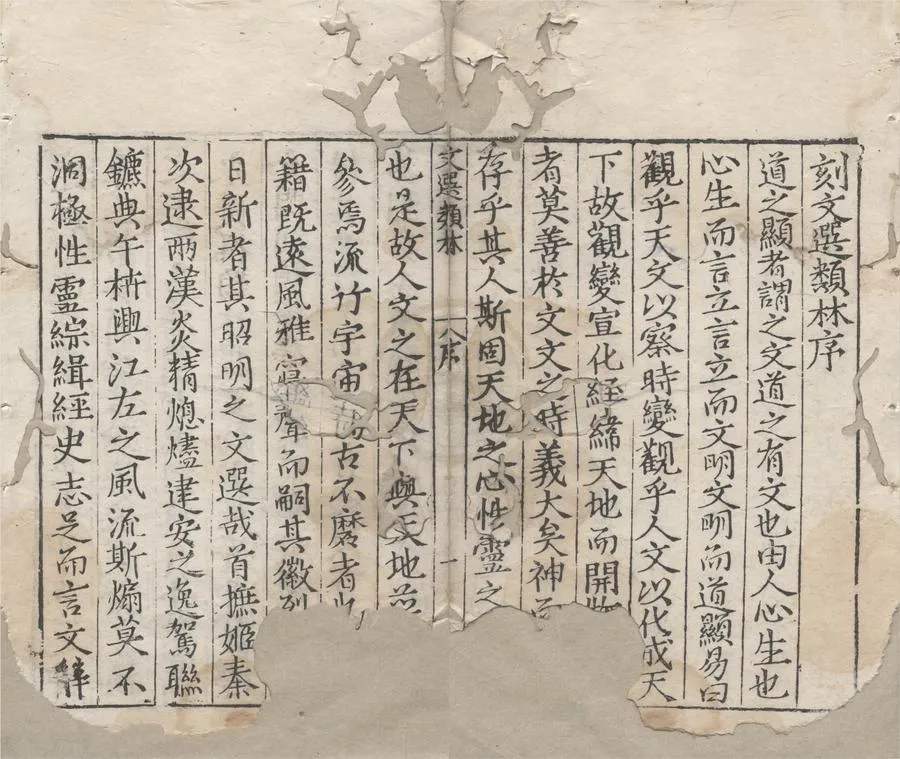 刻文選類林序
道之顯者謂之文道之有文也由人心生也
心生而言立言立而文明文明而道顯易曰
觀乎天文以察時變觀乎人文以化成天
下故觀變宣化経緯天地而開
者莫善於文文之時義大矣神而
存乎其人斯固天地之心性靈之
文選類林
序
一
也是故人文之在天下與天地並
參焉流行宇宙古不磨者
籍既遠風雅寢聲而嗣其徽
日新者其昭明之文選哉首摭姬秦
次逮兩漢炎精熄燼建安之逸駕聯
鑣典午枿興江左之風流斯煽莫不
洞極性靈綜緝經史志足而言文